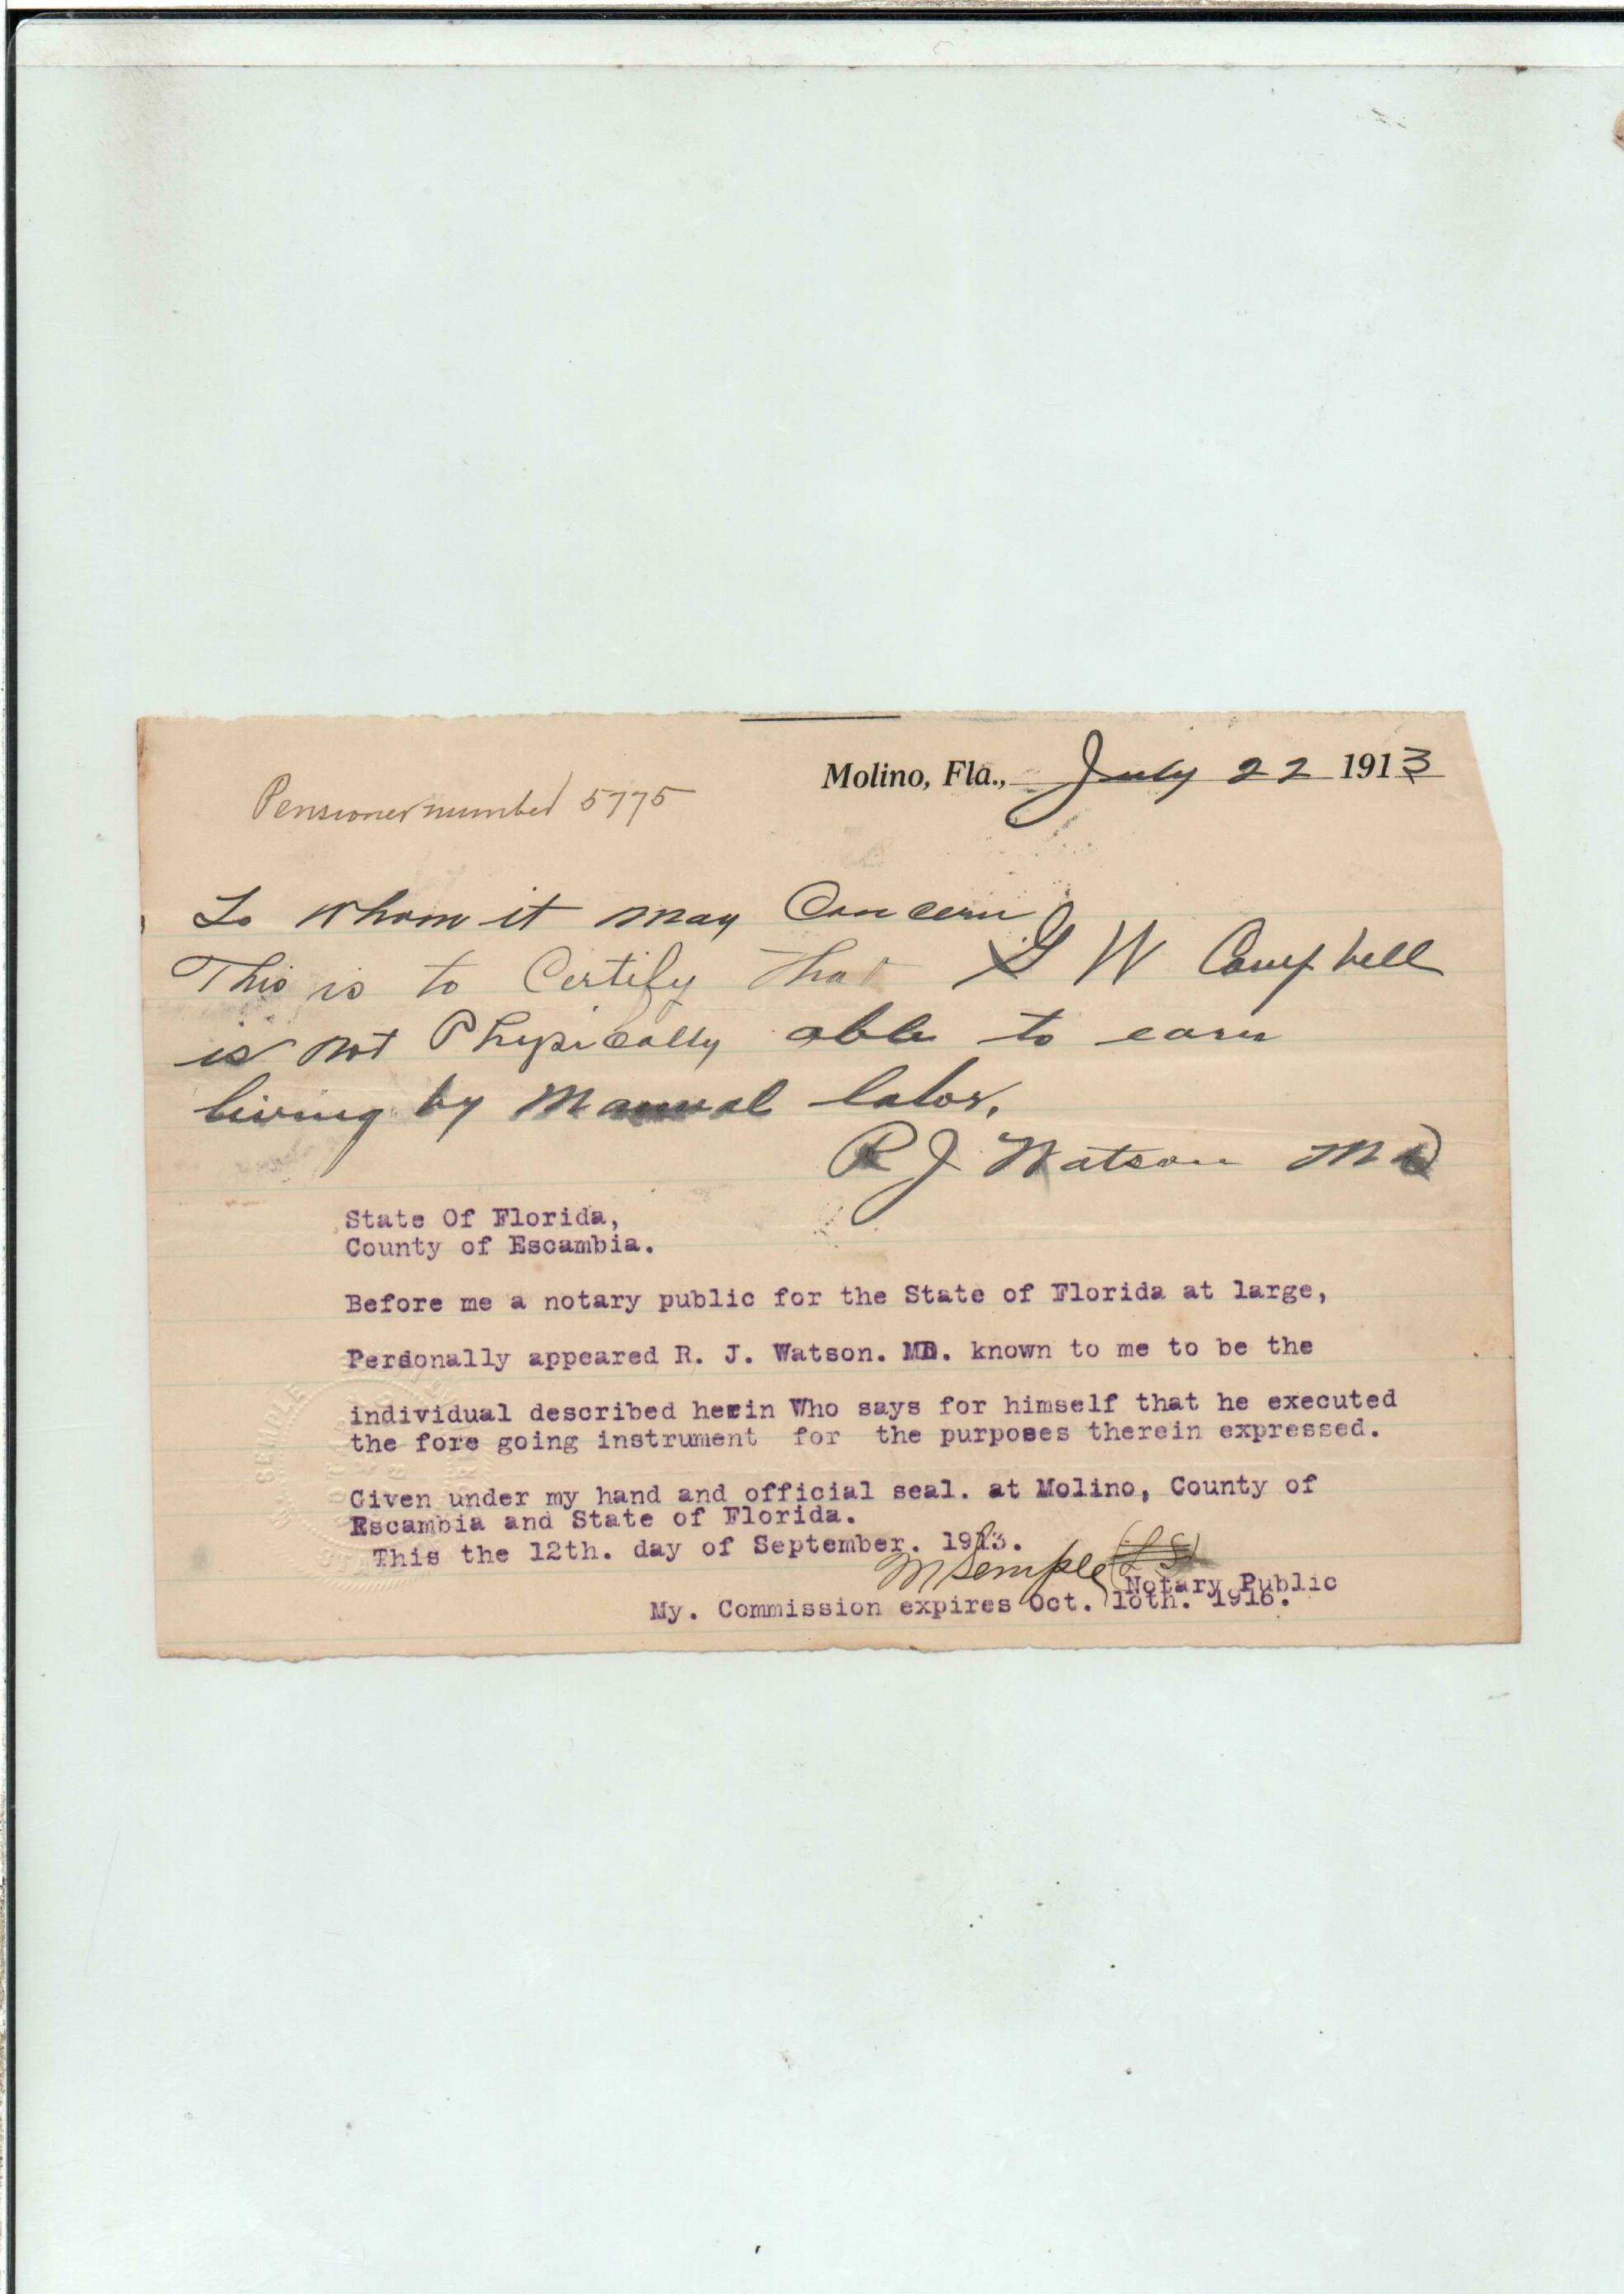 Molino, Fla., July 22 1913
Pensioner number 5775
To whom it may Concern
This is to Certify that G W Campbell
is not Physically able to earn
living by Manual labor.
R J Watson MD
State Of Florida,
County of Escambia.
Before me a notary public for the State of Florida at large,
Personally appeared R. J. Watson. MD. known to me to be the
individual described herin Who says for himself that he executed
the fore going instrument for the purposes therein expressed.
Given under my hand and official seal. at Molino, County of
Escambia and State of Florida.
This the 12th. day of September. 1913.
M Semple (L S)
Notary Public
My. Commission expires Oct. 10th. 1916.
SEMPLE